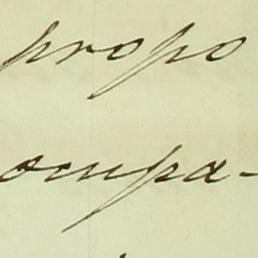 propo
ocupa-